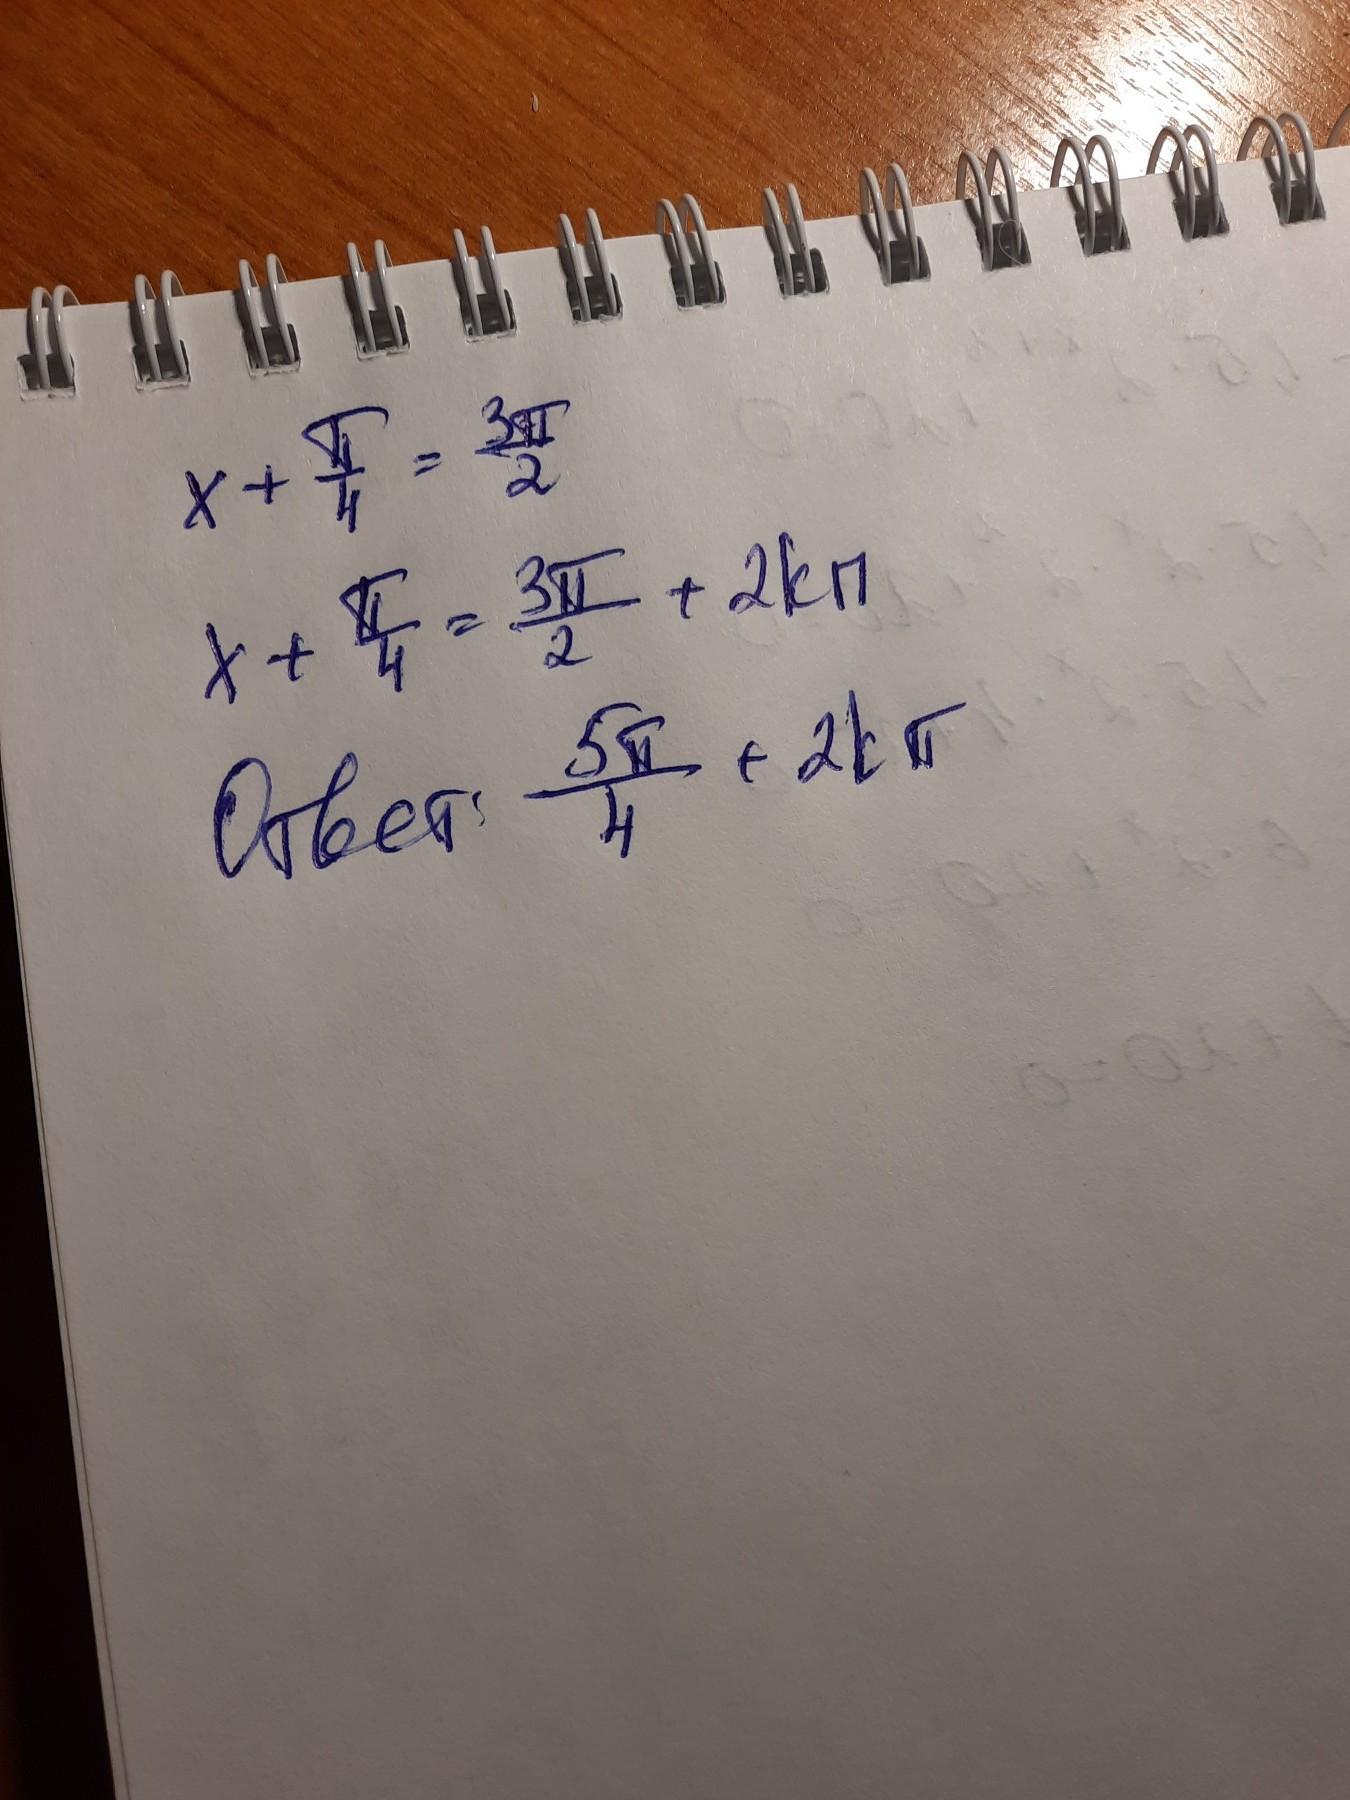 x + π/4 = 3π/2
x + π/4 = 3π/2 + 2kп
Ответ: 5π/4 + 2kπ